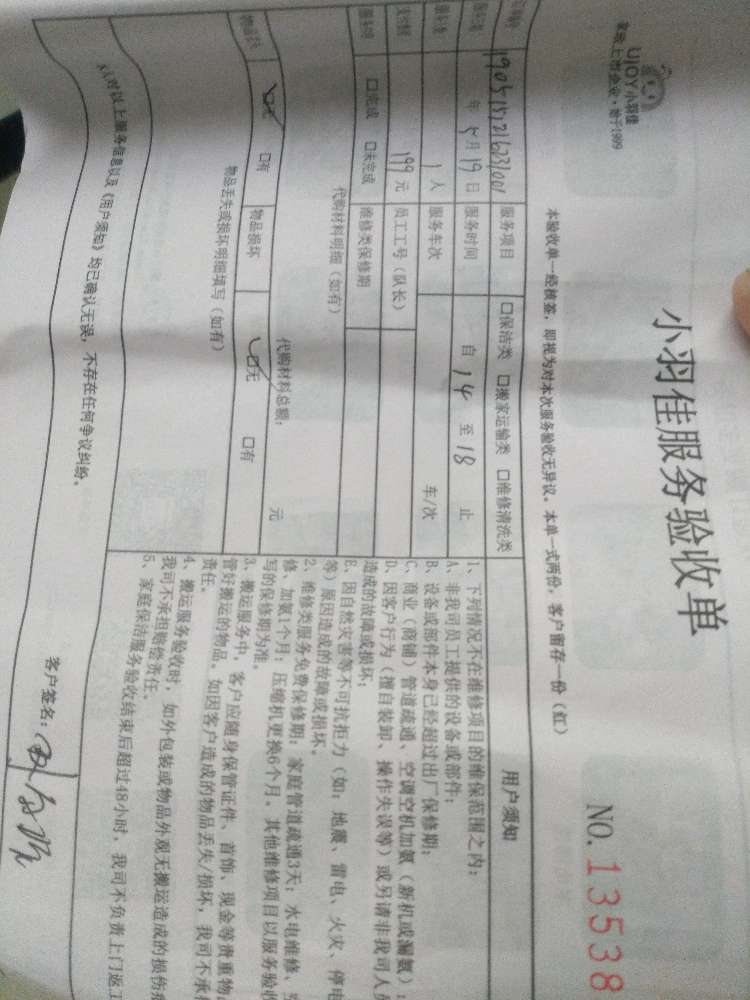 UJOY小羽佳
家政上市企业·始于1999
小羽佳服务验收单
NO.13538
本验收单一经核签，即视为对本次服务验收无异议。本单一式两份，客户留存一份（红）
服务项目 口保洁类 口搬家运输类 口维修清洗类
年5月19日 服务时间 自14 至18 止
1人 服务车次 车/次
199元 员工工号（队长）
口完成 口未完成 维修类保修期
代购材料明细（如有）
代购材料总额： 元
口无 口有 物品损坏 口无 口有
物品丢失或损坏明细填写（如有）
用户须知
1、下列情况不在维修项目的维保范围之内：
A、非我司员工提供的设备或部件；
B、设备或部件本身已经超过出厂保修期；
C、商业（商铺）管道疏通、空调空机加氨（新机或漏氨）；
D、因客户行为（擅自装卸、操作失误等）或另请非我司人
造成的故障或损坏；
E、因自然灾害等不可抗拒力（如：地震、雷电、火灾、停电
等）原因造成的故障或损坏。
2、维修类服务免费保修期：家庭管道疏通3天；水电维修、
修、加氨1个月；压缩机更换6个月。其他维修项目以服务验收
写的保修期为准。
3、搬运服务中，客户应随身保管证件、首饰、现金等贵重物
管好搬运的物品。如因客户造成的物品丢失/损坏，我司不承
责任。
4、搬运服务验收时，如外包装或物品外观无搬运造成的损伤
我司不承担赔偿责任。
5、家庭保洁服务验收结束后超过48小时，我司不负责上门返工
本人对以上服务信息以及《用户须知》均已确认无误，不存在任何争议纠纷。
客户签名：